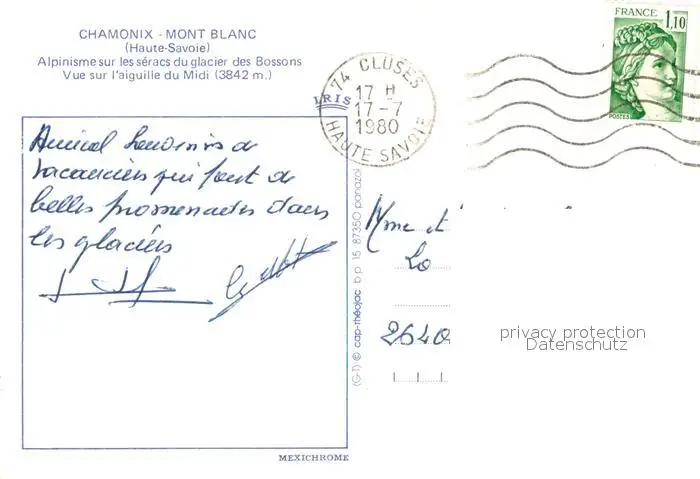 CHAMONIX - MONT BLANC
(Haute-Savoie)
Alpinisme sur les séracs du glacier des Bossons
Vue sur l'aiguille du Midi (3842 m.)
IRIS
74 CLUSES
17 H
17-7
1980
HAUTE SAVOIE
FRANCE
1,10
POSTES
Amical Souvenirs de
vacanciers qui font de
belles promenades dans
les glaciers
Mme et
Lo
2640
privacy protection
Datenschutz
(G-T) © cap-théojac b p 15 87350 panazol
MEXICHROME